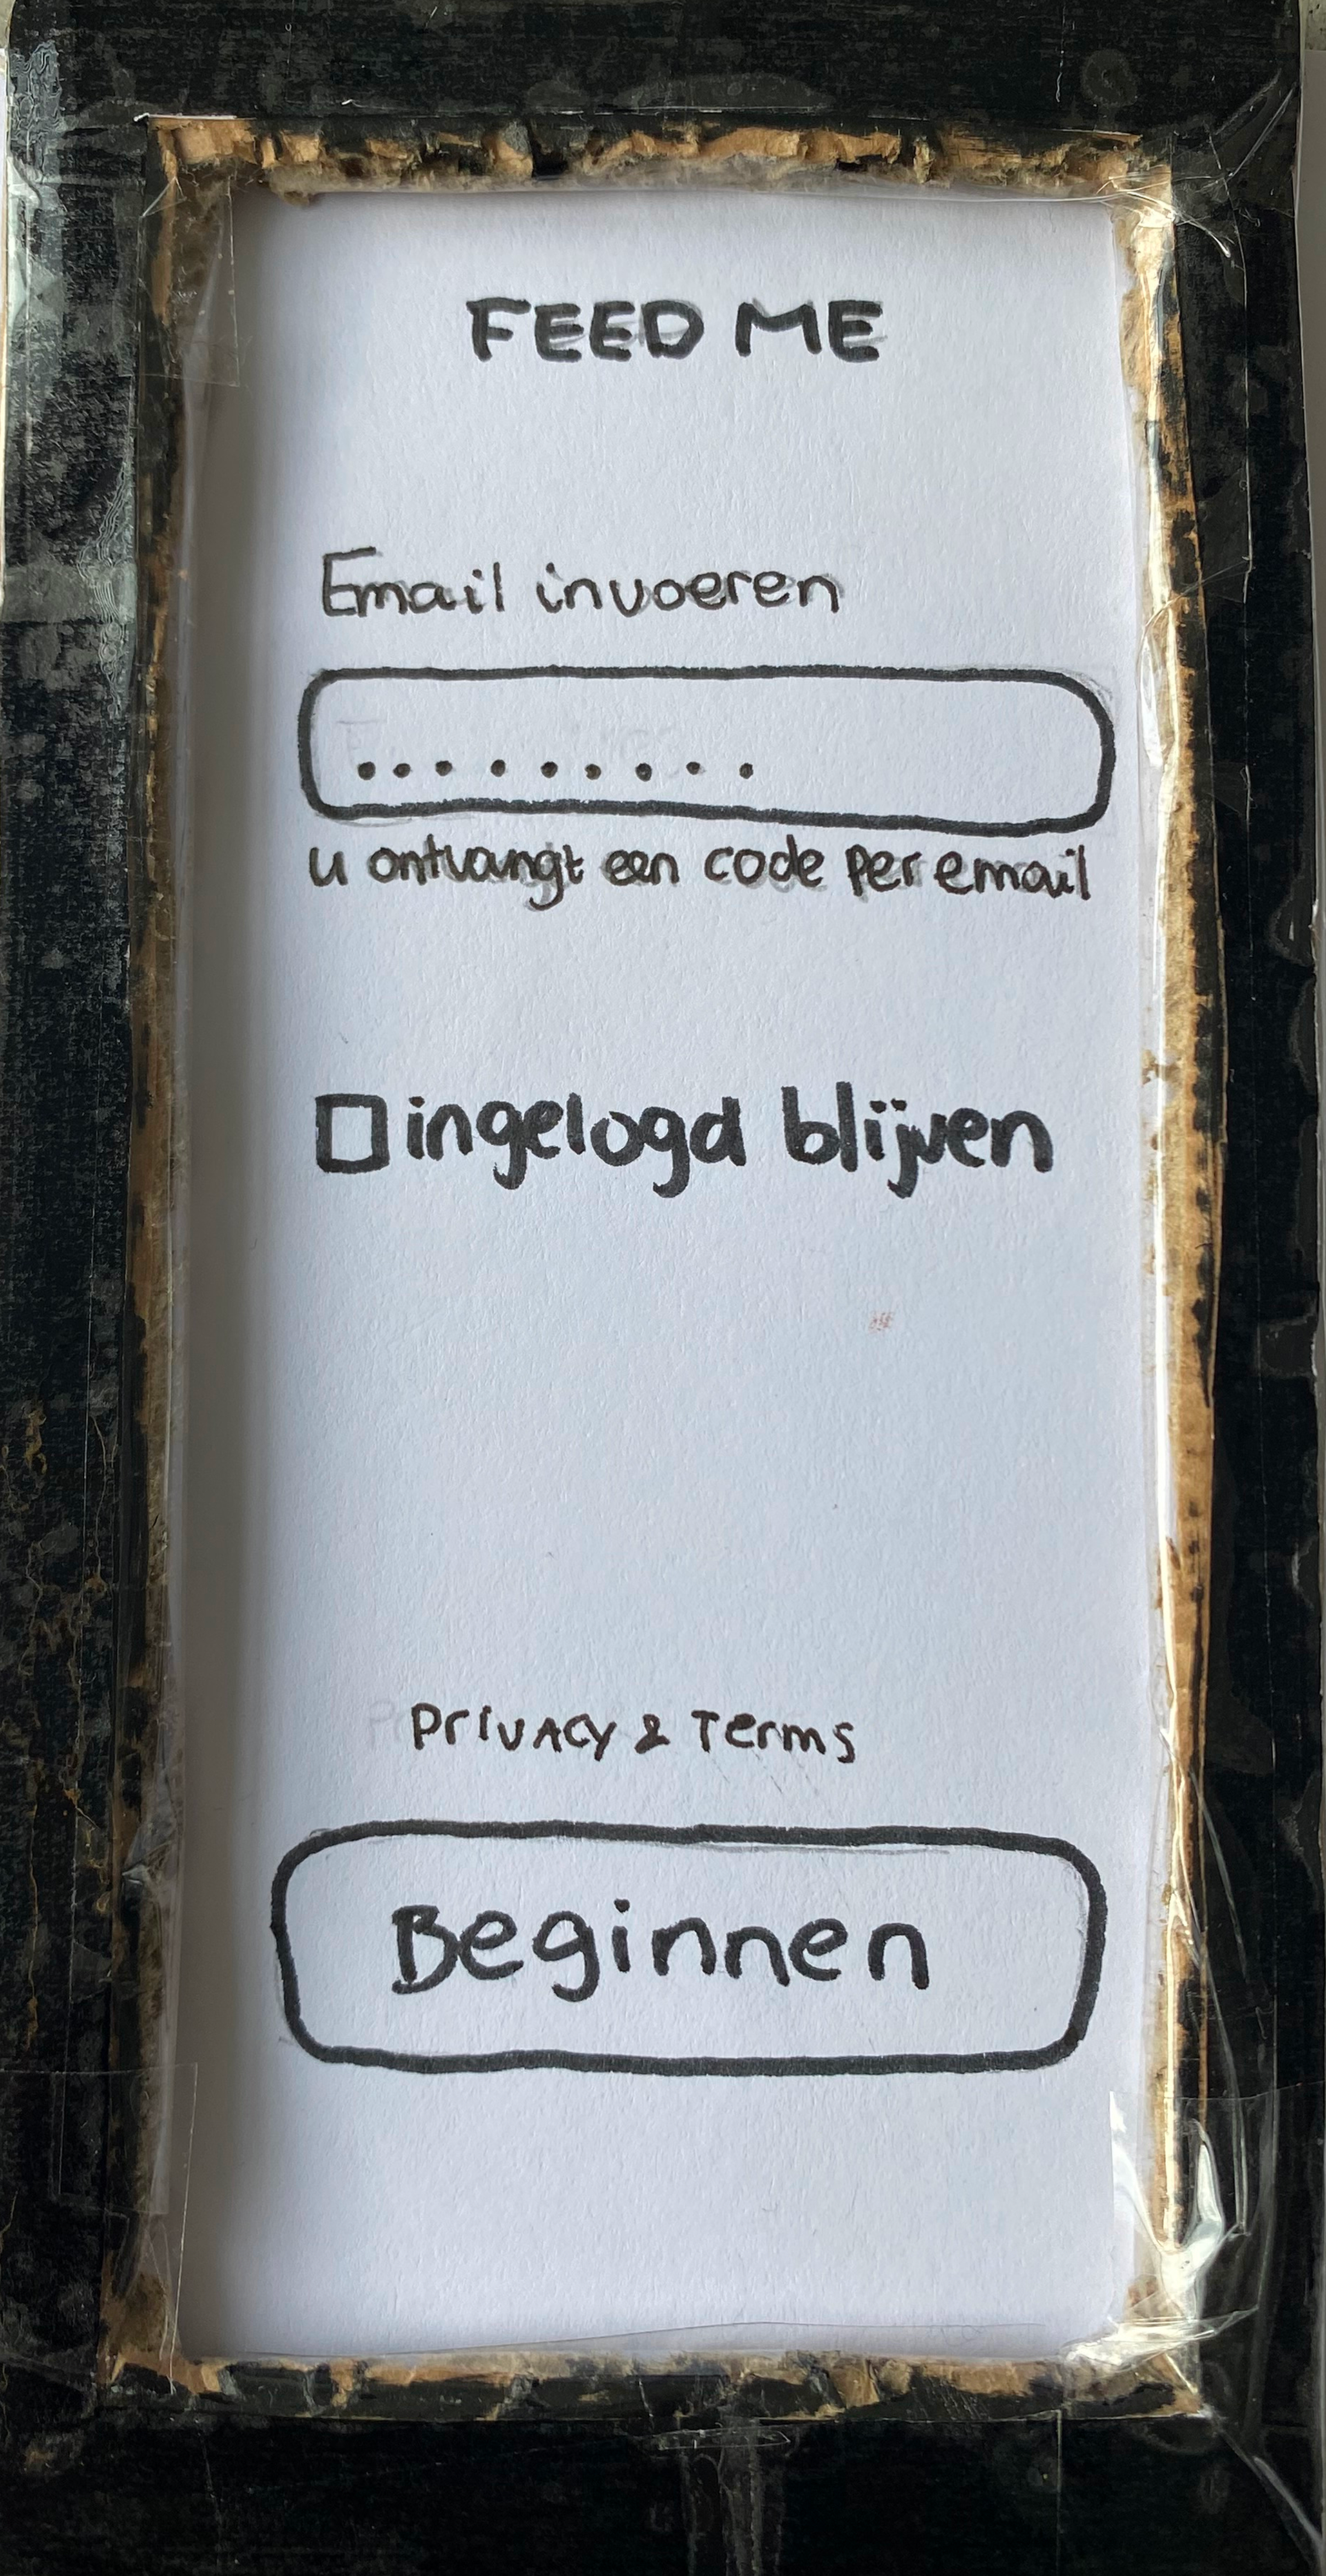 FEED ME
Email invoeren
.........
u ontvangt een code per email
ingelogd blijven
Privacy & Terms
Beginnen